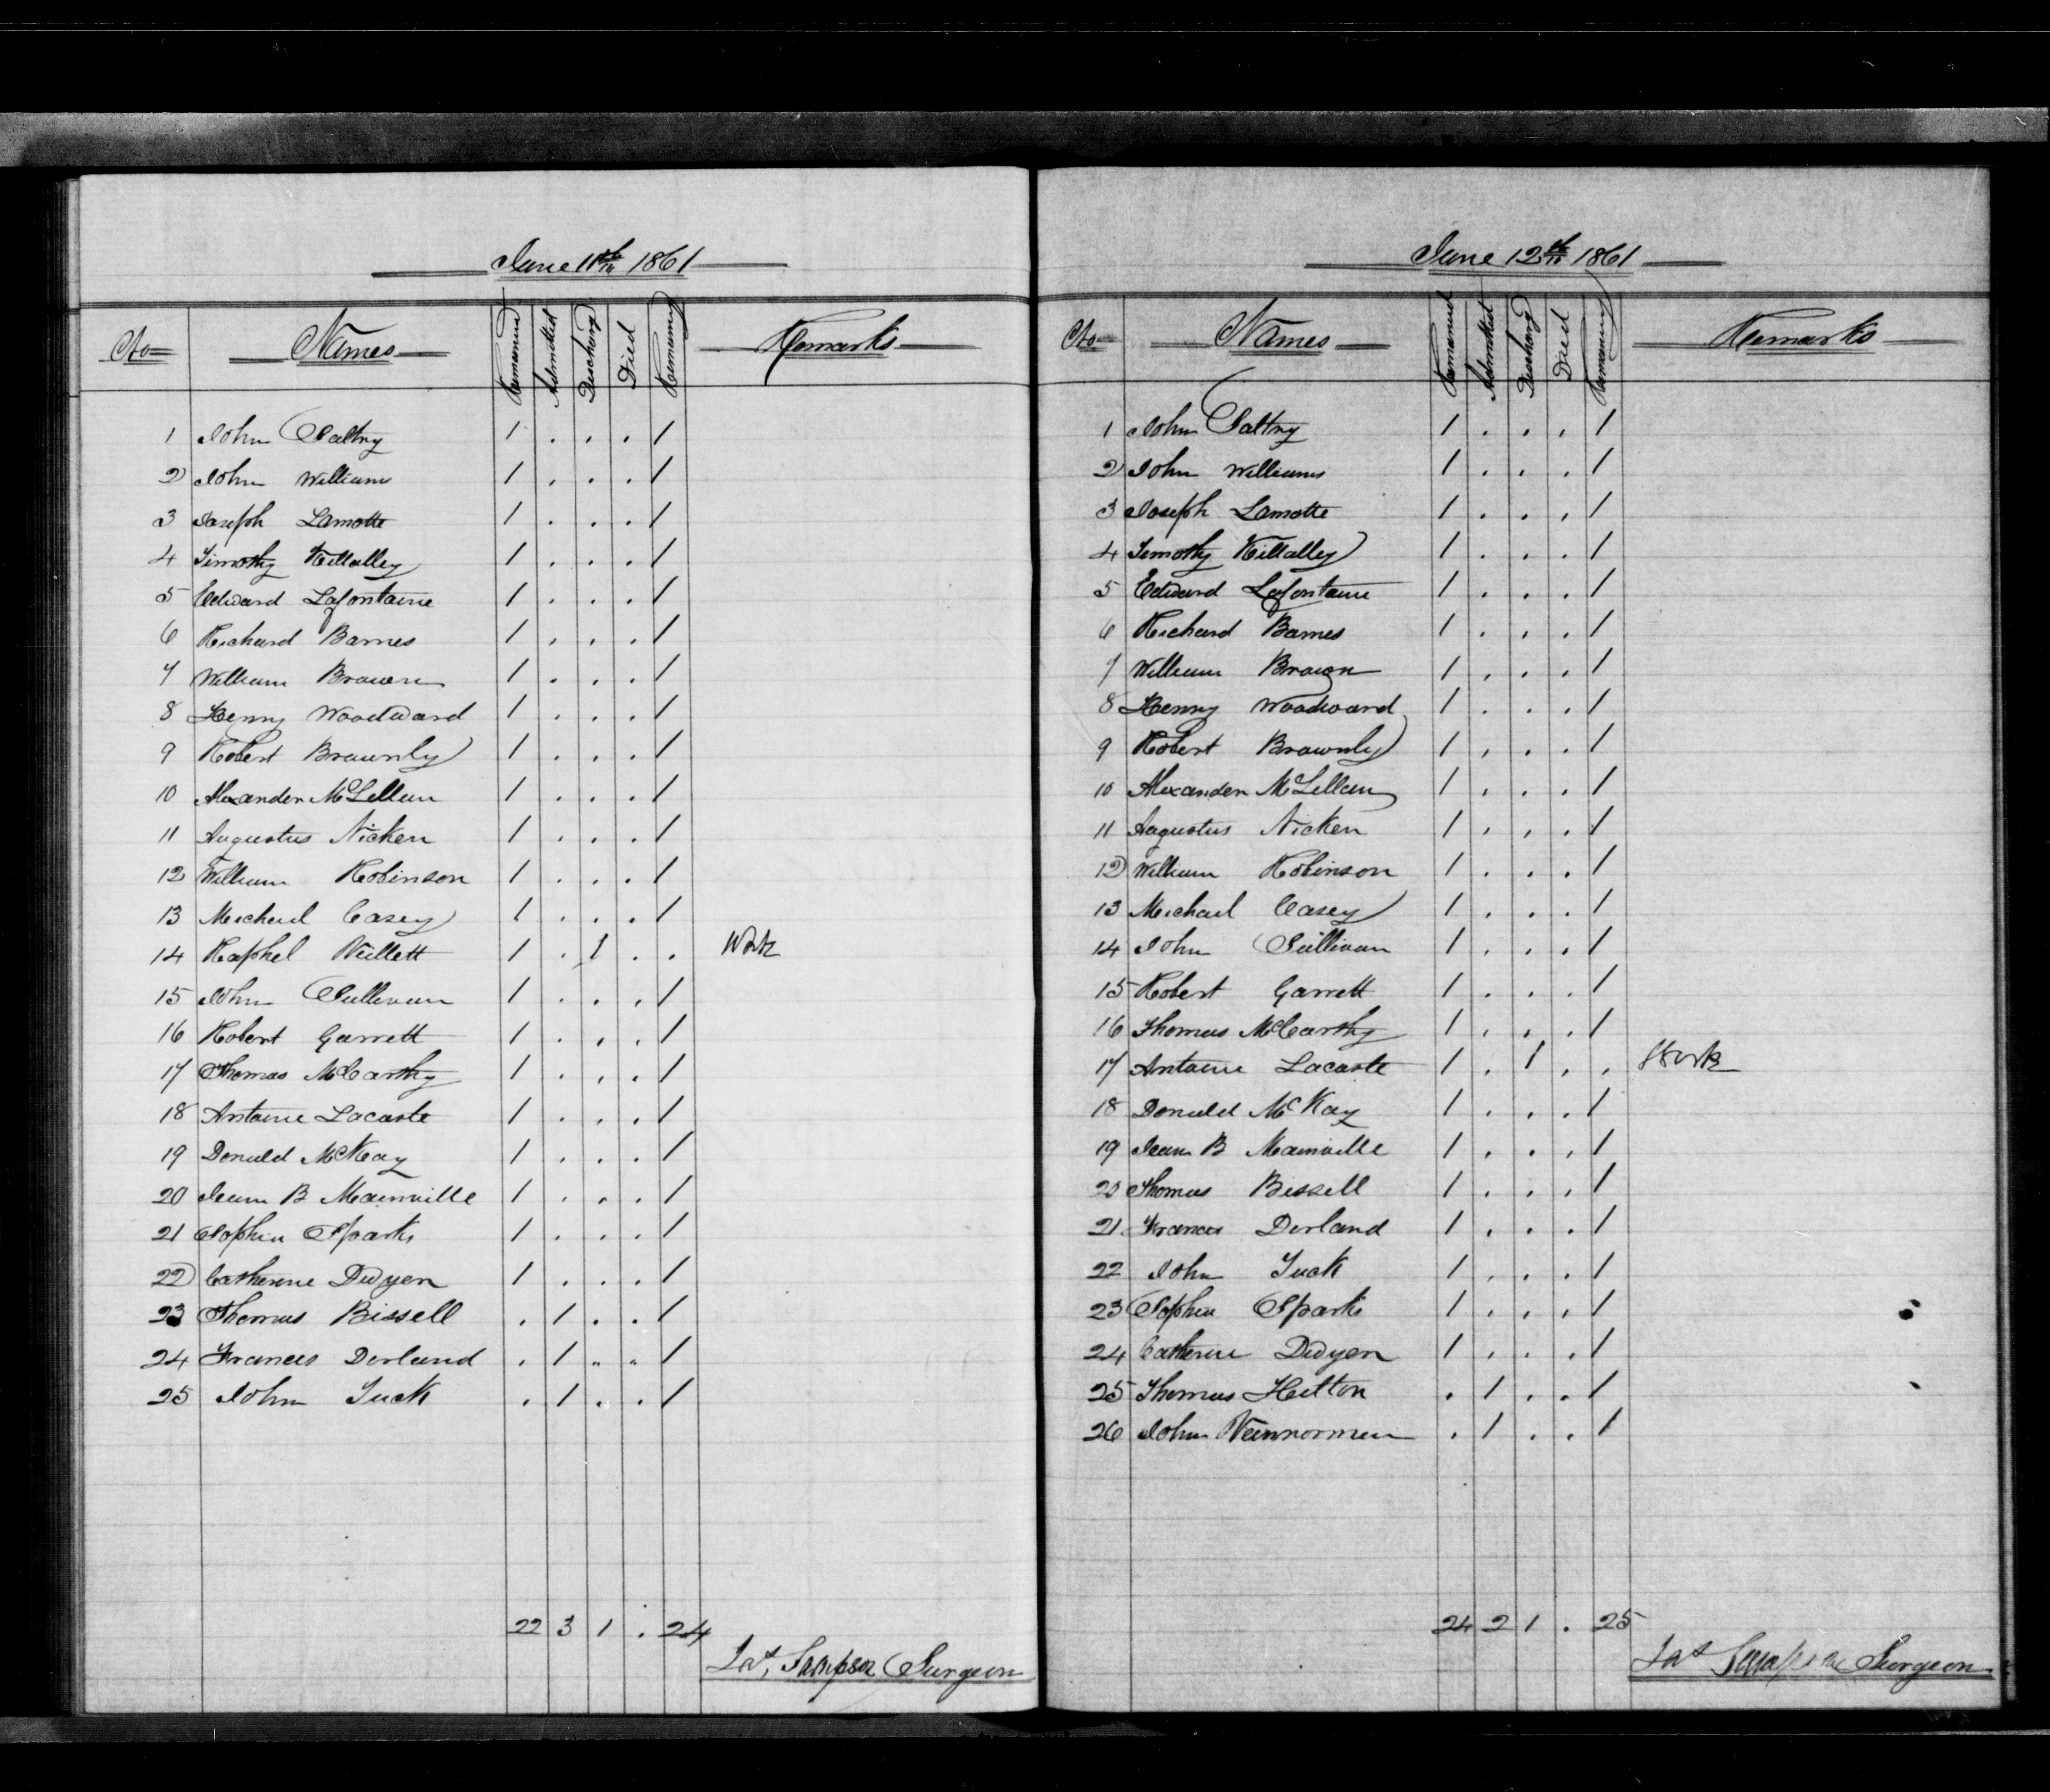 June 11th 1861
No Names Remained Admitted Discharg Died Remaining Remarks
1 John Saltry 1 . . . 1
2 John Williams 1 . . . 1
3 Joseph Lamotte 1 . . . 1
4 Timothy Killalley 1 . . . 1
5 Edward Lafontaine 1 . . . 1
6 Richard Barnes 1 . . . 1
7 William Brown 1 . . . 1
8 Henry Woodward 1 . . . 1
9 Robert Brownly 1 . . . 1
10 Alexander McLellan 1 . . . 1
11 Augustus Nicken 1 . . . 1
12 William Robinson 1 . . . 1
13 Michael Casey 1 . . . 1
14 Raphel 1 . 1 . . Work
15 John Sullivan 1 . . . 1
16 Robert Garrett 1 . . . 1
17 Thomas McCarthy 1 . . . 1
18 Antoine Lacaste 1 . . . 1
19 Donald McKay 1 . . . 1
20 Jean B Mainville 1 . . . 1
21 Sophia Sparks 1 . . . 1
22 Catherine Dwyer 1 . . . 1
23 Thomas Bissell . 1 . . 1
24 Francis Dorland . 1 . . 1
25 John Tuck . 1 . . 1
22 3 1 . 24
Jas Sampson Surgeon
June 12th 1861
No Names Remained Admitted Discharg Died Remaining Remarks
1 John Saltry 1 . . . 1
2 John Williams 1 . . . 1
3 Joseph Lamotte 1 . . . 1
4 Timothy Killalley 1 . . . 1
5 Edward Lafontaine 1 . . . 1
6 Richard Barnes 1 . . . 1
7 William Brown 1 . . . 1
8 Henry Woodward 1 . . . 1
9 Robert Brownly 1 . . . 1
10 Alexander McLellan 1 . . . 1
11 Augustus Nicken 1 . . . 1
12 William Robinson 1 . . . 1
13 Michael Casey 1 . . . 1
14 John Sullivan 1 . . . 1
15 Robert Garrett 1 . . . 1
16 Thomas McCarthy 1 . . . 1
17 Antoine Lacaste 1 . 1 . . Work
18 Donald McKay 1 . . . 1
19 Jean B Mainville 1 . . . 1
20 Thomas Bissell 1 . . . 1
21 Francis Dorland 1 . . . 1
22 John Tuck 1 . . . 1
23 Sophia Sparks 1 . . . 1
24 Catherine Dwyer 1 . . . 1
25 Thomas Hutton . 1 . . 1
26 John Vannorman . 1 . . 1
24 2 1 . 25
Jas Sampson Surgeon